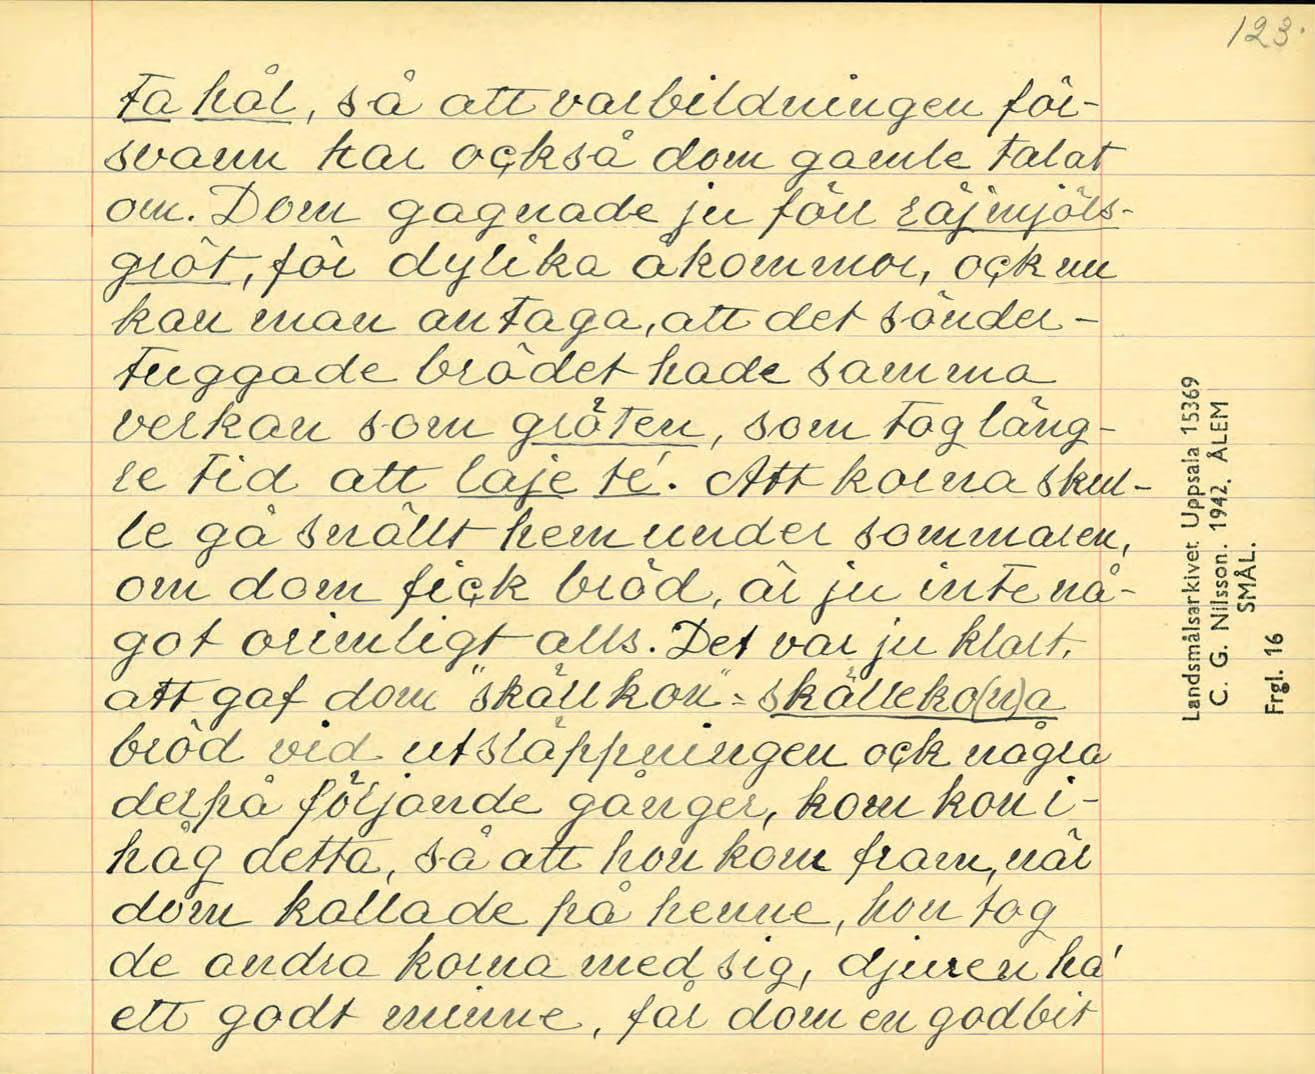 123.
ta hål, så att varbildningen för-
svann har också dom gamle talat
om. Dom gagnade ju förr råjmjöls-
gröt, för dylika åkommor, ock nu
kan man antaga, att det sönder-
tuggade brödet hade samma
verkan som gröten, som tog läng-
re tid att laje té. Att korna skul-
le gå snällt hem under sommaren,
om dom fick bröd, är ju inte nå-
got orimligt alls. Det var ju klart,
att gaf dom "skällkon" = skälleko(n)a
bröd vid utsläppningen ock några
derpå följande gånger, kom kon i-
håg detta, så att hon kom fram, när
dom kallade på henne, hon tog
de andra korna med sig, djuren ha'
ett godt minne, får dom en godbit
Landsmålsarkivet Uppsala 15369
C. G. Nilsson. 1942. ÅLEM
SMÅL.
Frgl. 16